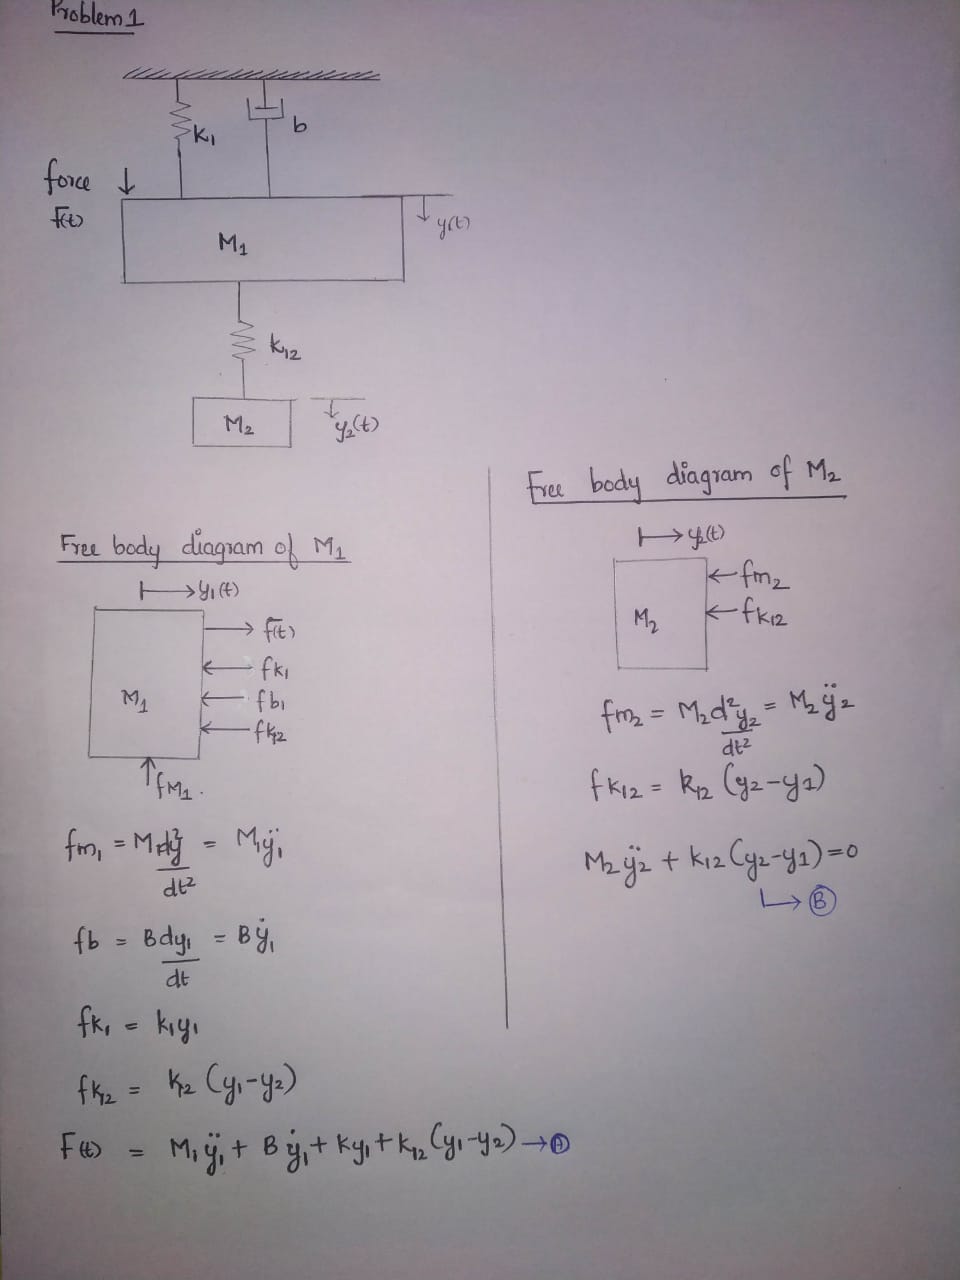 Problem 1
K₁
b
force
f(t)
y(t)
M₁
K₁₂
M₂
y₂(t)
Free body diagram of M₁
y₁(t)
f(t)
fk₁
fb₁
fk₁₂
M₁
fM₁.
fm₁ = M₁d²y/dt² = M₁ÿ₁
fb = Bdy₁/dt = Bẏ₁
fk₁ = k₁y₁
fk₁₂ = k₁₂ (y₁-y₂)
F(t) = M₁ÿ₁ + Bẏ₁ + Ky₁ + k₁₂ (y₁-y₂) → Ⓐ
Free body diagram of M₂
y₂(t)
fm₂
fk₁₂
M₂
fm₂ = M₂d²y₂/dt² = M₂ÿ₂
fk₁₂ = k₁₂ (y₂-y₁)
M₂ÿ₂ + k₁₂(y₂-y₁)=0
→ Ⓑ